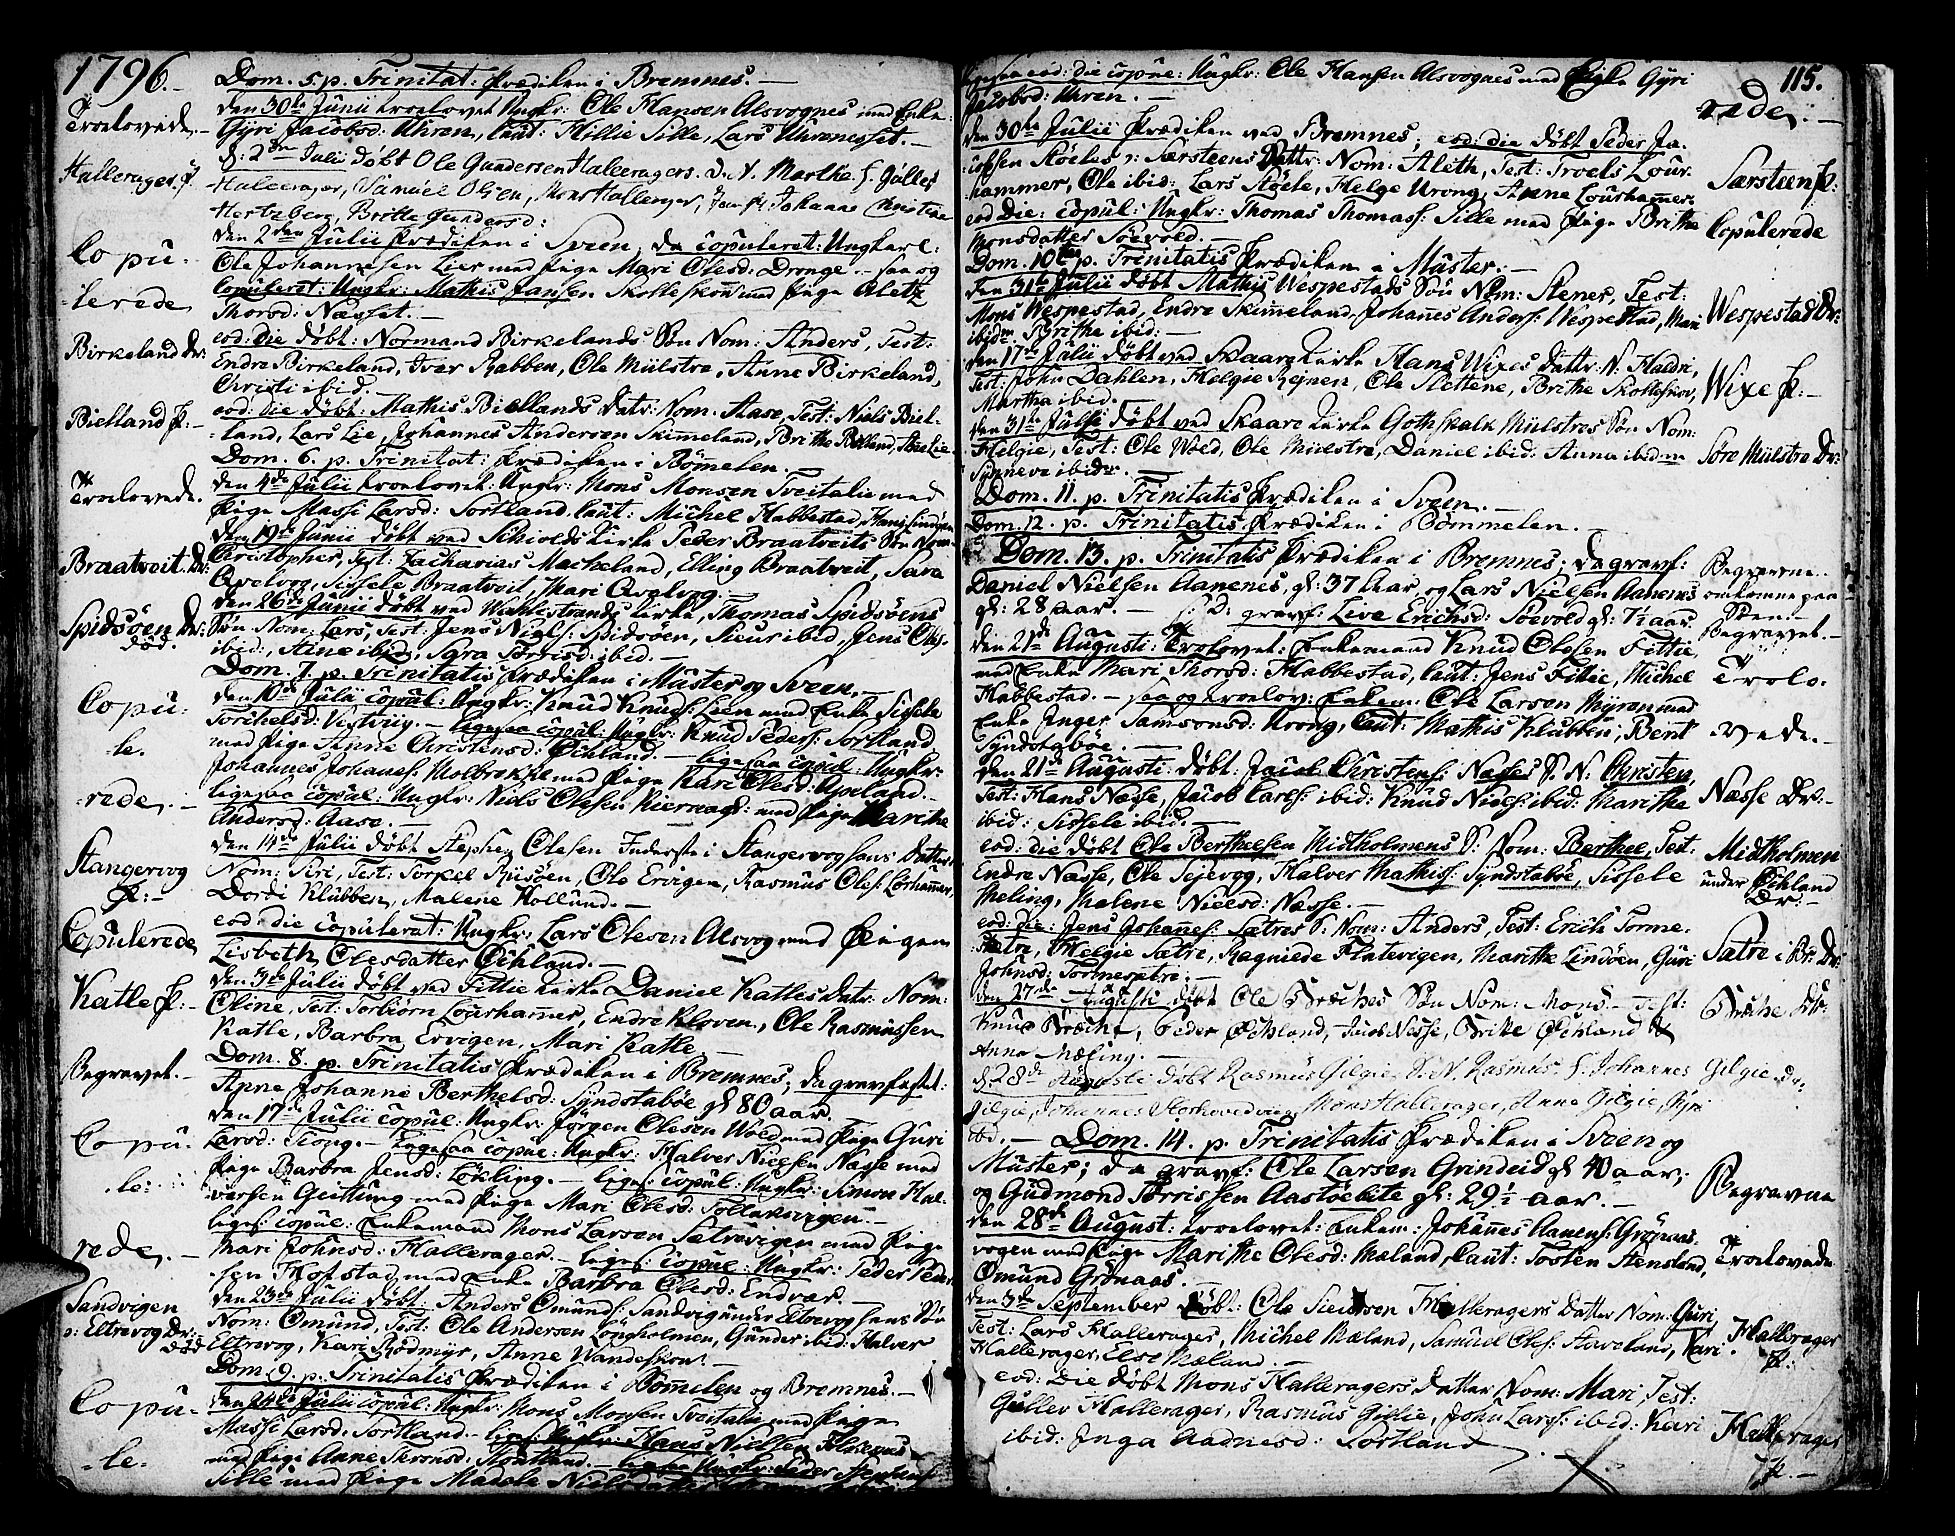 1796.
Dom. 5 p. Trinitat: Prædiken i Bremnes.
Troelovede.
den 30te Junii troelovet Ungkr: Ole Hansen Alsvognes med Enke
Gÿri Jacobsd: Uhren, caut: Hillie Sille, Lars Uhrenesset.
Hallerager P.
d: 2den Julii døbt Ole Gundersen Halleragers D. N. Marthe. f. Jülles
Hallerager, Samüel Olsen, Mons Hallerager, Johanna Christine
Hertzberg, Britte Gundersd:
Copu-
den 2den Julii Prædiken i Sveen, da copuleret: Ungkarl:
Ole Johannesen Lier med Pige Mari Olesd: Drange. saa og
lerede
copuleret: Ungkr: Mathis Jansen Skolleskou med Pige Aleth
Thorsd: Næsset.
Birkeland Dr:
eod: die døbt: Normand Birkelands Søn Nom: Anders, Test:
Endre Birkeland, Iver Rabben, Ole Mülstre, Anne Birkeland,
Christi ibid.
Bielland P:
eod: die døbt: Mathis Biellands Datr: Nom: Aase, Test: Niels Biel-
land, Lars Lie, Johannes Andersen Skimmeland, Brithe Bielland, Aase Lie.
Dom. 6. p. Trinitat: Prædiken i Bömmelen.
Troelovede.
den 4de Julii troelovet: Ungkr: Mons Monsen Tveitalie med
Pige Massi Larsd: Sortland. caut: Michel Habbestad,
Braatveit. Dr:
den 19de Junii døbt ved Schiolds Kirke Peder Braatveits Søn Nom:
Christopher, Test: Zacharias Mæcheland, Elling Braatveit, Sara
Qvalvog, Sissele Braatveit, Mari Qvalvog.
Spidsöen Dr:
död.
den 26de Junii døbt ved Wahlestrands Kirke, Thomas Spidsöens
Søn Nom: Lars, Test: Jens Niels: Spidsöen, Siur ibid, Jens Ols:
ibid:, Aine ibid:, Sara Torrisd: ibid.
Dom. 7. p. Trinitatis Prædiken i Müster og Sveen.
Copu-
den 10de Julii copul: Ungkr: Knud Knuds: Seen med Enke Sissele
Torchelsd: Vestvüg. ligesaa copul: Ungkr: Knud Peders: Sortland
le.
med Pige Anne Christensd: Öchland. ligesaa copul: Ungkr:
Johannes Johanes: Molbrokke med Pige Kari Olesd: Upeland.
rede.
ligesaa copul: Ungkr: Niels Olesen Kiernag: med Pige Marithe
Andersd: Aase.
Stangervog
P:
den 14de Julii døbt Stephen Olesen Inderste i Stangervog hans Datter
Nom: Siri, Test: Torkel Rüsöen, Ole Ervigen, Rasmus Oles: Lorhammer,
Dordi Klübben, Malene Hollund.
Copulerede
eod: die copuleret: Ungkr: Lars Olesen Alsvog med Pigen
Lisbeth Olesdatter Öchland.
Katle P:
den 3de Julii døbt ved Fittie Kirke Daniel Katles Datr: Nom:
Oline, Test: Torbiörn Lourhamer, Endre Kloven, Ole Rasmussen
Katle, Barbra Ervigen, Mari Katle
Begravet.
Dom. 8. p. Trinitatis Prædiken i Bremnes; da gravfæstet:
Anne Johanne Berthelsd: Sÿndstabøe gl: 80 aar.
Copu-
den 17de Julii copul: Ungkr: Jörgen Olesen Wold med Pige Guri
Larsd: Tiong. ligesaa copul: Ungkr: Halver Nielsen Næsse med
le:
Pige Barbra Jensd: Lökling. liges: copul: Ungkr: Simon Hal-
versen Geittung med Pige Mari Olesd: Tollaksvigen.
rede.
liges: copul: Enkemand Mons Larsen Sætrevigen med Pige
Mari Johnsd: Hallerager. liges: copul: Ungkr: Peder Peder-
sen Hofstad med Enke Barbra Olesd: Endvær.
Sandvigen
u: Eltrevog Dr:
död
den 23de Julii døbt Anders Omunds: Sandvig under Eltrevog hans Søn
Nom: Omünd, Test: Ole Andersen Löngholmen, Gunder ibid: Halver
Eltrevog, Kari Rödmÿr, Anne Wandeskou.
Dom. 9. p. Trinitatis Prædiken i Bömelen og Bremnes.
Copu-
den 24de Julii copul: Ungkr: Mons Monsen Tveitalie med Pige
Massi Larsd: Sortland. liges: Ungkr: Hans Nielsen
le.
med Pige Anne Aronsd: ligesaa Ungkr: Peder Stephens:
Sille med Pige Madele Nielsdatter
115.
ligesaa eod: die copul: Ungkr: Ole Hansen Alsvognes med Gÿri
Jacobsd: Uhren.
rede.
den 30te Julii Prædiken ved Bremnes, eod: die døbt Peder Ja-
cobsen Stöeles Særsteens Dattr: Nom: Aleth, Test: Troels Lour-
hammer, Ole ibid: Lars Stöele, Helge Urong, Anne Lourhamer.
Særsteen P:
eod die: copul: Ungkr: Thomas Thomass: Sille med Pige Brithe
Monsdatter Söevold.
Copulerede
Dom. 10de p. Trinitatis Prædiken i Müster.
den 31te Julii døbt Mathis Wespestads Søn Nom: Stener, Test:
Mons Wespestad, Endre Skimeland, Johannes Anders: Wespestad, Mari
ibidm. Brithe ibid:
Wespestad Dr:
den 17de Julii døbt ved Skaare Kirke Hans Wixes Dattr: N: Haldri,
Test: John Dahlen, Helgie Rejnen, Ole Slettene, Brithe Skolleskou,
Martha ibid.
Wixe P:
den 31te Julii døbt ved Skaare Kirke Gothskalk Mülstres Søn Nom:
Helgie, Test: Ole Woed, Ole Mülstre, Daniel ibid: Anna ibidm
Synneva ibidm.
Søre Mülstre Dr:
Dom. 11. p. Trinitatis Prædiken i Sveen.
Dom. 12. p. Trinitatis Prædiken i Bömmelen.
Dom. 13. p. Trinitatis Prædiken i Bremnes; da gravf:
Daniel Nielsen Aamenes, gl: 37 Aar, og Lars Nielsen Aamenes
gl: 28 aar. gravf: Live Erichsd: Søevold gl: 7½ aar.
Begravne
omkomne paa
Søen.
Begravet.
den 21de Augusti: Trolovet: Enkemand Knud Olesen Fittie
med Enke Mari Thorsd: Habbestad, caut: Jens Fittie, Michel
Habbestad. saa og troelov: Enkem: Ole Larsen Mÿran med
Enke Inger Samsonsd: Urong, Caut: Mathis Klübben, Bernt
Sÿndstabøe.
Trolo-
vede.
den 21de Augusti: døbt: Jacob Christens: Næsses S. N: Christen,
Test: Hans Næsse, Jacob Lars: ibid: Knud Niels: ibid: Marithe
ibid: Sissele ibid.
Næsse Dr:
eod: die døbt Ole Berthelsen Midtholmens S: Nom: Berthel, Test:
Endre Næsse, Ole Tejevog, Halver Mathis: Sÿndstabøe, Sissele
Meling, Malene Nielsd: Næsse.
Midtholmen
under Öchland
Dr:
eod: die: Jens Johanes: Sætres S: Nom: Anders, Test: Erich Torme-
sætre, Helgie Sætre, Ragniede Flatevigen, Marithe Lindöen, Guri
Johnsd: Tormesætre.
Sætre i Br: Dr:
den 27de Augusti døbt Ole Bræches Søn Nom: Mons. Test:
Knud Bræche, Peder Öchland, Jacob Næsse, Brite Öchland &
Anna Mæling.
Bræche Dr:
d: 28de Augusti døbt Rasmus Gilgie S. N. Rasmus. f. Johannes
Gilgie, Johannes Storhovedvig, Mons Hallerager, Anne Gilgie,
ibd.
Gilgie Dr:
Dom. 14. p. Trinitatis Prædiken i Sveen og
Müster; da gravf: Ole Larsen Grindeid gl: 40 aar;
og Gudmond Torrissen Aastöebite gl: 29½ aar.
Begravne
den 28de August: troelovet: Enkem: Johanes Aamens: Grönaas-
vogen med Pige Marithe Olesd: Mæland, caut: Tosten Stensland,
Omünd Grönaas.
Troelovede
den 3de September døbt: Ole Siursen Halleragers Datter Nom: Guri,
Test: Lars Hallerager, Michel Mæland, Samuel Oles: Staveland, Kari
Hallerager, Else Mæland.
Hallerager
P:
eod: die døbt Mons Halleragers Datter Nom: Mari, Test:
Gullev Hallerager, Rasmus Gillie, John Lars: ibid: Kari
ibid: Inga Aadnesd: Sortland
Hallerager
P.